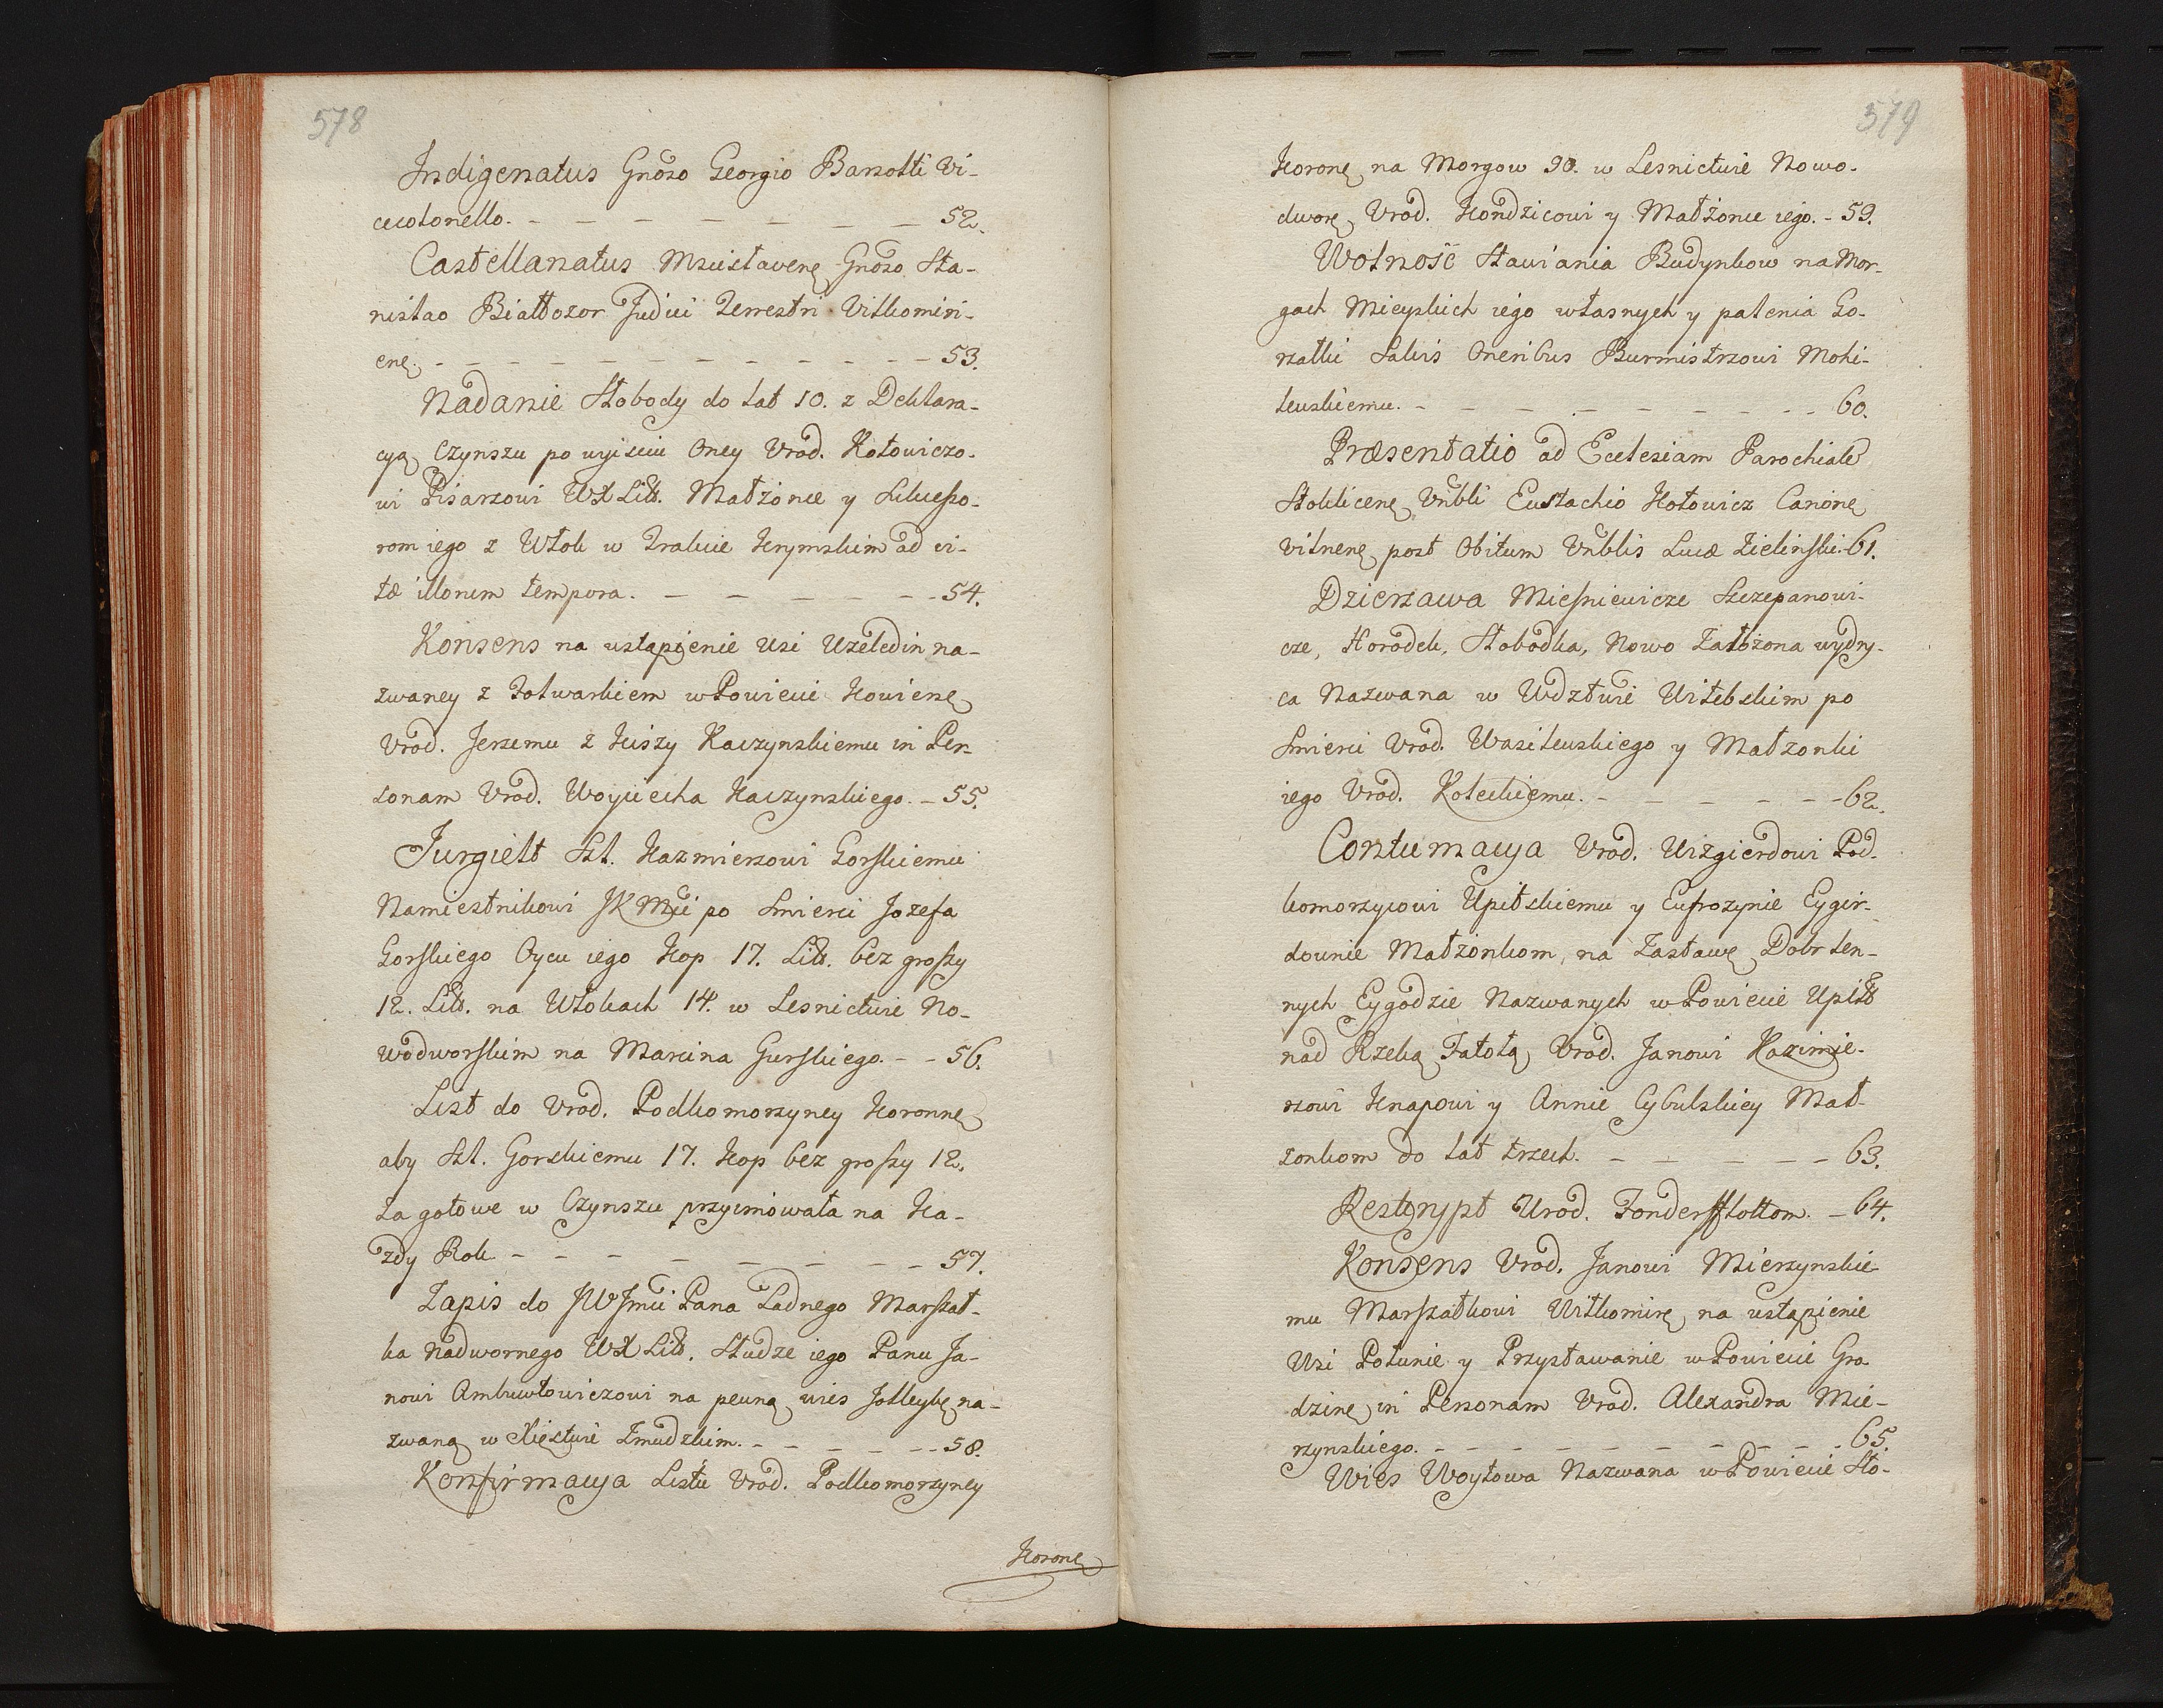 578
Indigenatus Gnoso Georgio Barzotti Vi-
cecolonello. - - - - - - - - 52.
Castellanatus Mscislavenę Gnoso Sta-
nislao Białłozor Judici Terrestri Vilkomiri-
enę. - - - - - - - - - - - 53.
Nadanie Słobody do lat 10. z Deklara-
cyą Czynszu po wyisciu Oney Urod. Kotowiczo-
wi Pisarzowi WXLitt. Małżonce y Sukcesso-
rom iego z Włok w Trakcie Krymskim ad vi-
tæ illorum tempora. - - - - - - 54.
Konsens na ustąpienie Wsi Uzeledin na-
zwaney z Folwarkiem w Powiecie Kowienę
Urod. Jerzemu z Kiszy Kaczynskiemu in Per-
sonam Urod. Woyciecha Kaczynskiego. - 55.
Jurgielt Szl. Kazmierzowi Gorskiemu
Namiestnikowi JKMci po Smierci Jozefa
Gorskiego Oycu iego Kop 17. Litt. bez groszy
12. Litt. na Włokach 14. w Lesnictwie No-
wodworskim na Marcina Gurskiego. - - 56.
List do Urod. Podkomorzyney Koronnę
aby Szl. Gorskiemu 17. Kop bez groszy 12.
za gotowe w Czynszu przyimowała na Ka-
żdy Rok - - - - - - - - 57.
Zapis do JWJmci Pana Ladnego Marszał-
ka Nadwornego WXLitt. Słudze iego Panu Ja-
nowi Ambuwtowiczowi na pewną wies Jolleykę na-
zwaną w Xięstwie Zmudzkim. - - - - - - 58.
Konfirmacya Listu Urod. Podkomorzyney
Koronę
579
Koronę na Morgow 30. w Lesnictwie Nowo-
dworę Urod. Kondzicowi y Małżonce iego. - 59.
Wolność Stawiania Budynkow na Mor-
gach Mieyskich iego własnych y palenia Go-
rzałki Salvis Oneribus Burmistrzowi Mohi-
lewskiemu. - - - - - - - - 60.
Præsentatio ad Ecclesiam Parochiale
Stoklicenę Vnbli Eustachio Kotowicz Canonę
Vilnenę post Obitum Vnblis Lucæ Zielinski. 61.
Dzierzawa Miesnicwicze Szczepanowi-
cze, Horodek, Słobodka, Nowo Załóżona wydry-
ca Nazwana w Wdztwie Witebskim po
Smierci Urod. Wasilewskiego y Małzonki
iego Urod. Koteckiemu. - - - - - - 62.
Contumacya Urod. Wizgierdowi Pod-
komorzycowi Upitskiemu y Eufrozynie Eygir-
downie Małżonkom, na Zastawę Dobr len-
nych Eygodzie Nazwanych w Powiecie Upitt
nad Rzeką Tatołą Urod. Janowi Kazimie-
rzowi Knapowi y Annie Cybulskiey Mał-
zonkom do lat trzech. - - - - - 63.
Reskrypt Urod. Fonderflottom. - 64.
Konsens Urod. Janowi Mierzynskie-
mu Marszałkowi Wiłkomirę na ustąpienie
Wsi Połunie y Przystawanie w Powiecie Gro
dzinę in Personam Urod. Alexandra Mie-
rzynskiego. - - - - - - - - - 65.
Wies Woytowa Nazwana w Powiecie Sło-